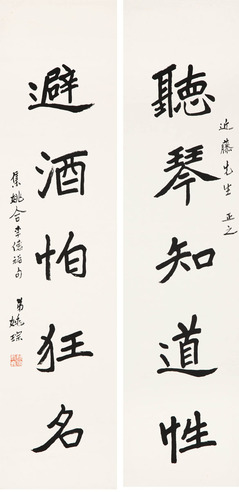 聽琴知道性
近藤先生正之
避酒怕狂名
集姚合李德裕句
弟姚琮